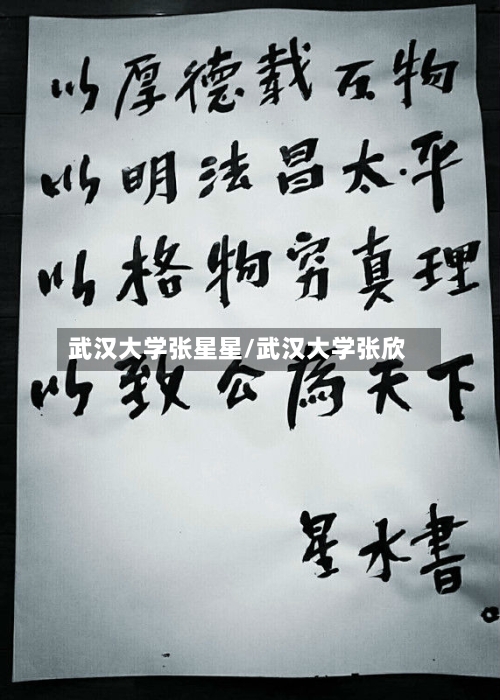 以厚德载万物
以明法昌太平
以格物穷真理
武汉大学张星星/武汉大学张欣
以致公为天下
星水書